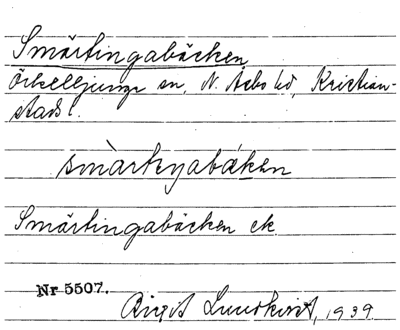 Smärtingabäcken
Örkelljunga sn, N. Åsbo hd, Kristian-
stads l.
smàrtɩŋabǽken
Smärtingabäcken ek.
Nr 5507.
Birgit Lundkvist, 1939